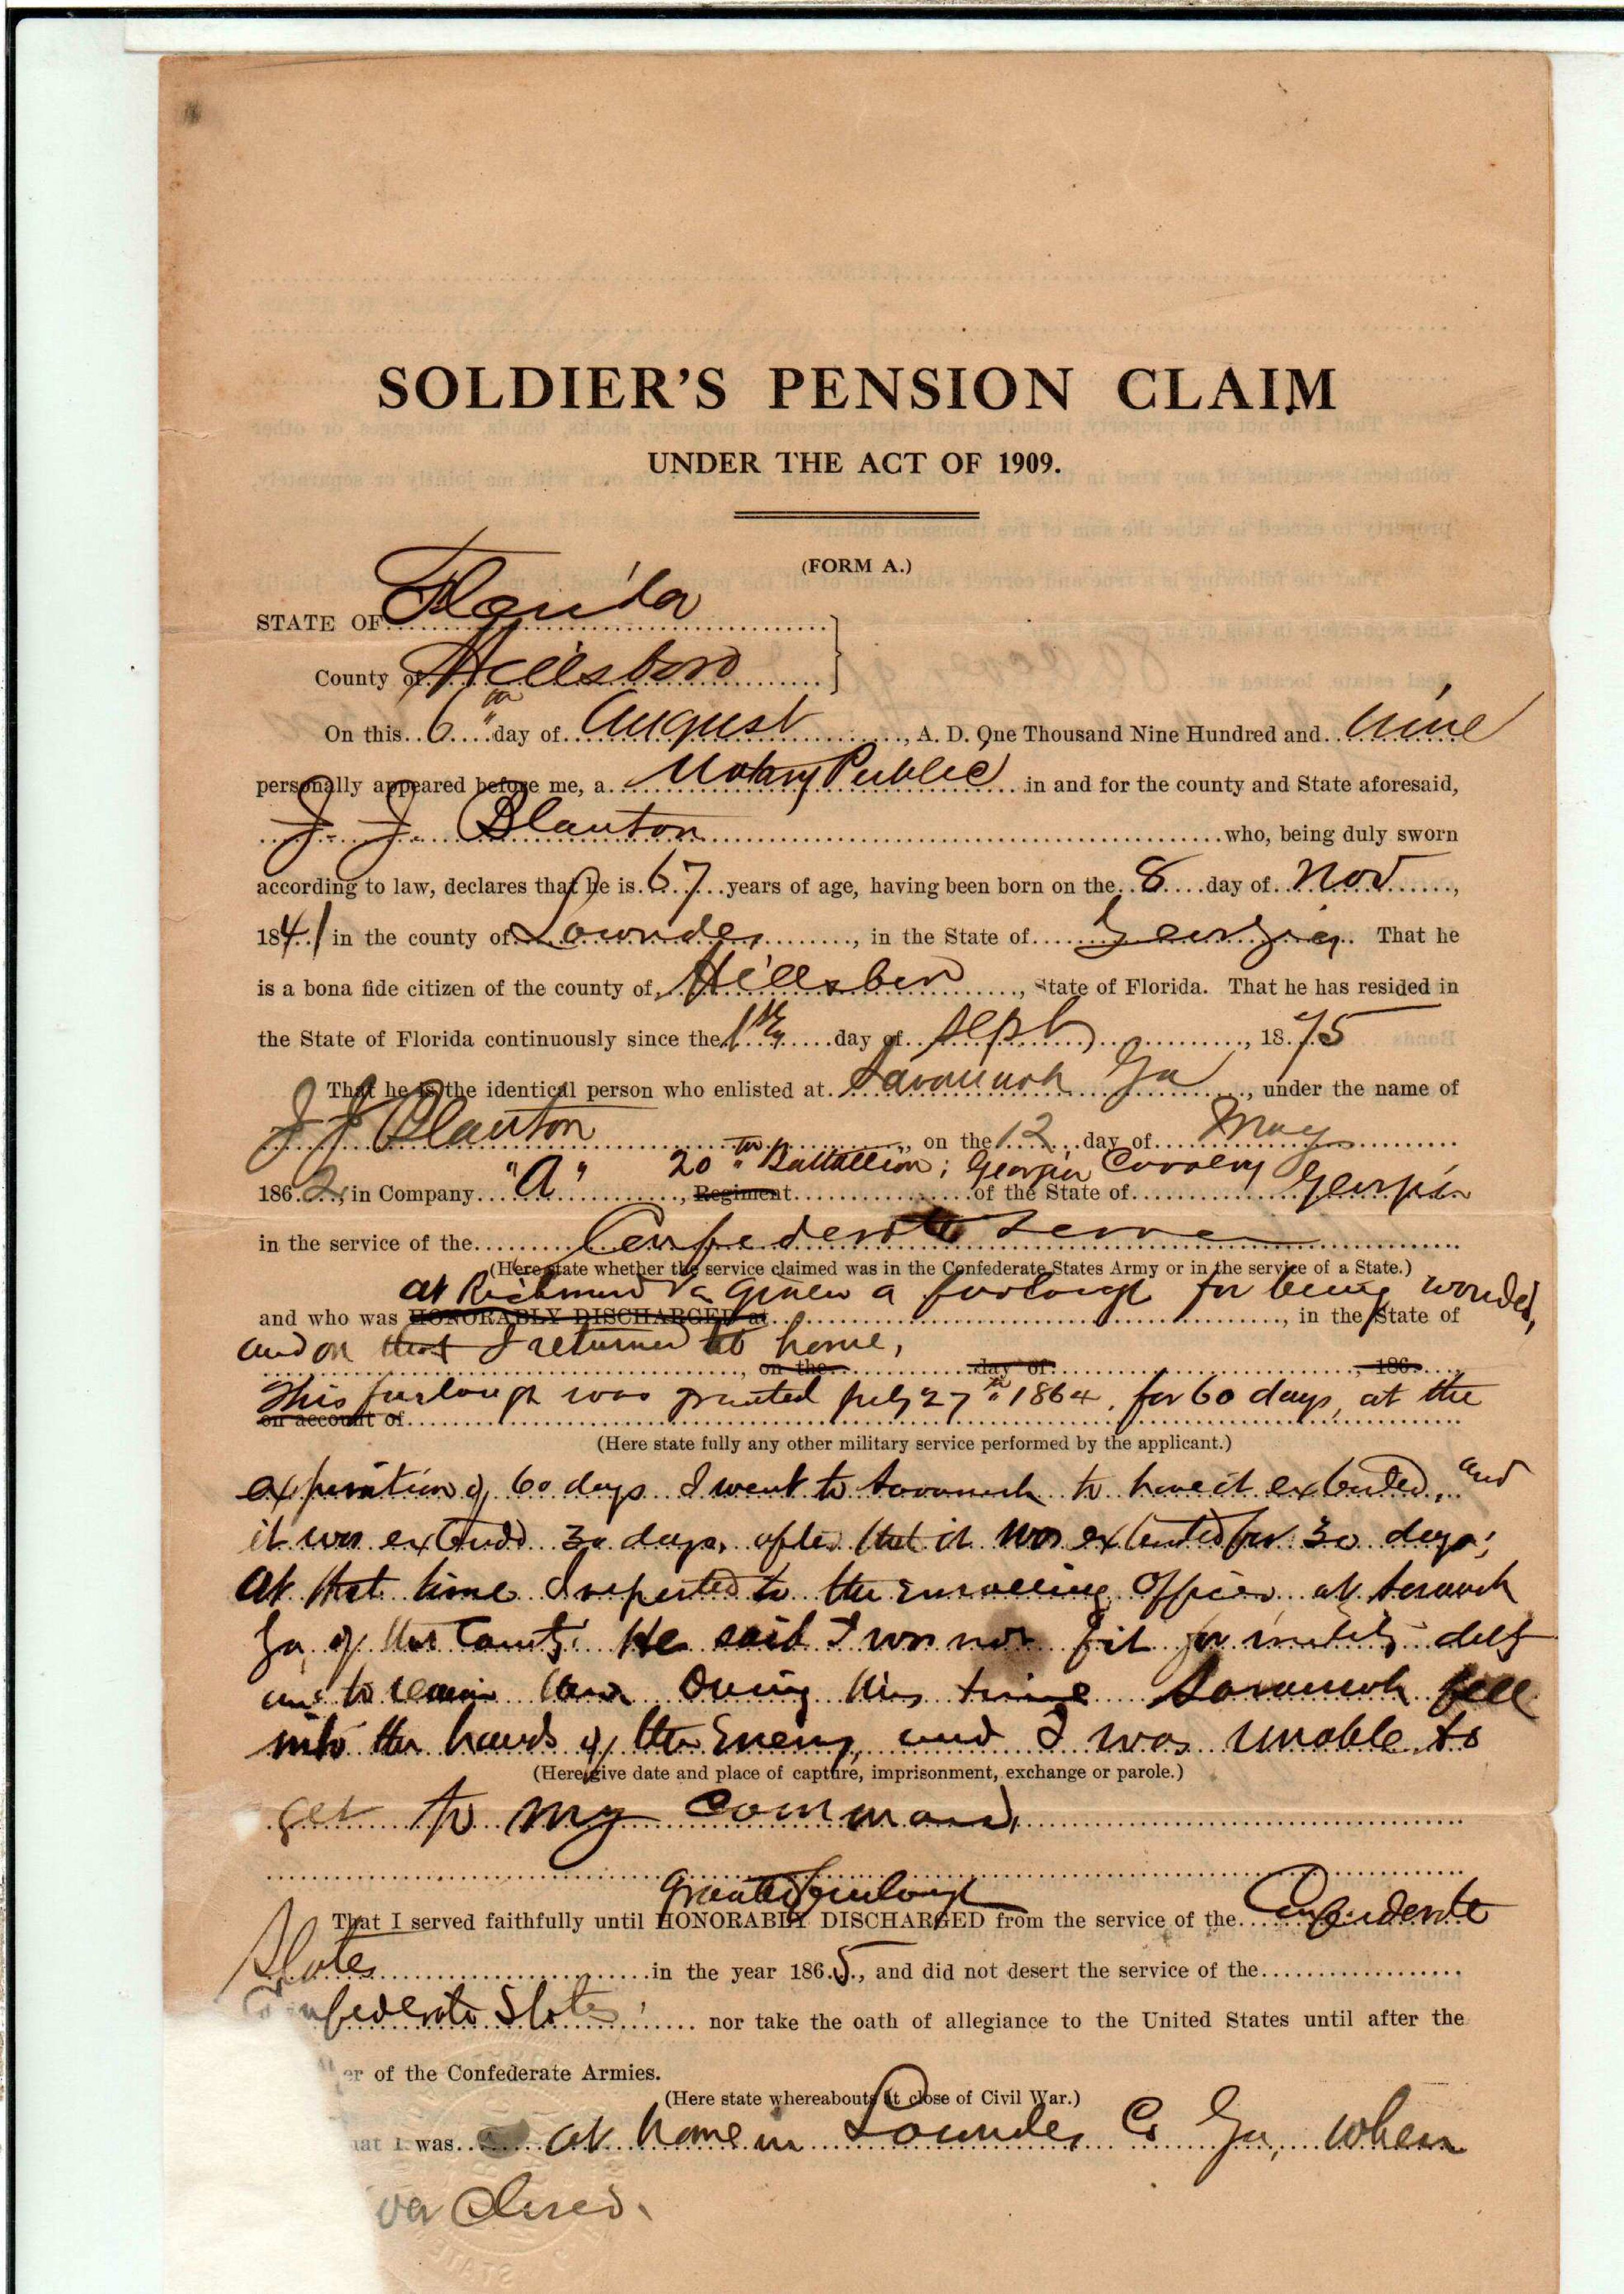 SOLDIER'S PENSION CLAIM
UNDER THE ACT OF 1909.
(FORM A.)
STATE OF Florida
County of Hillsboro
On this 6th day of August, A. D. One Thousand Nine Hundred and nine
personally appeared before me, a Notary Public in and for the county and State aforesaid,
J. J. Blanton who, being duly sworn
according to law, declares that he is 67 years of age, having been born on the 8 day of Nov,
1841 in the county of Lowndes, in the State of Georgia. That he
is a bona fide citizen of the county of Hillsboro, State of Florida. That he has resided in
the State of Florida continuously since the 1st day of Sept, 1875
That he is the identical person who enlisted at Savannah Ga, under the name of
J J Blanton, on the 12 day of May
20th Battallion; Georgia Cavalry
1862, in Company "A", Regiment of the State of Georgia
in the service of the Confederate
(Here state whether the service claimed was in the Confederate States Army or in the service of a State.)
at Richmond Va given a furlough for being wounded,
and who was HONORABLY DISCHARGED at, in the State of
and on that I returned to home,
, on the day of, 186
This furlough was granted July 27th 1864, for 60 days, at the
on account of
(Here state fully any other military service performed by the applicant.)
expiration of 60 days I went to Savannah to have it extended, and
it was extended 30 days, after that it was extended for 30 days;
at that time I reported to the Enrolling Officer at Savannah
Ga, of that County. He said I was not fit for
and to remain During this time Savannah fell
into the hands of the Enemy, and I was unable to
(Here give date and place of capture, imprisonment, exchange or parole.)
get to my command,
granted furlough
That I served faithfully until HONORABLY DISCHARGED from the service of the Confederate
States in the year 1865, and did not desert the service of the
Confederate States; nor take the oath of allegiance to the United States until after the
er of the Confederate Armies.
(Here state whereabouts at close of Civil War.)
hat I was at home in Lowndes Co Ga, when
closed.